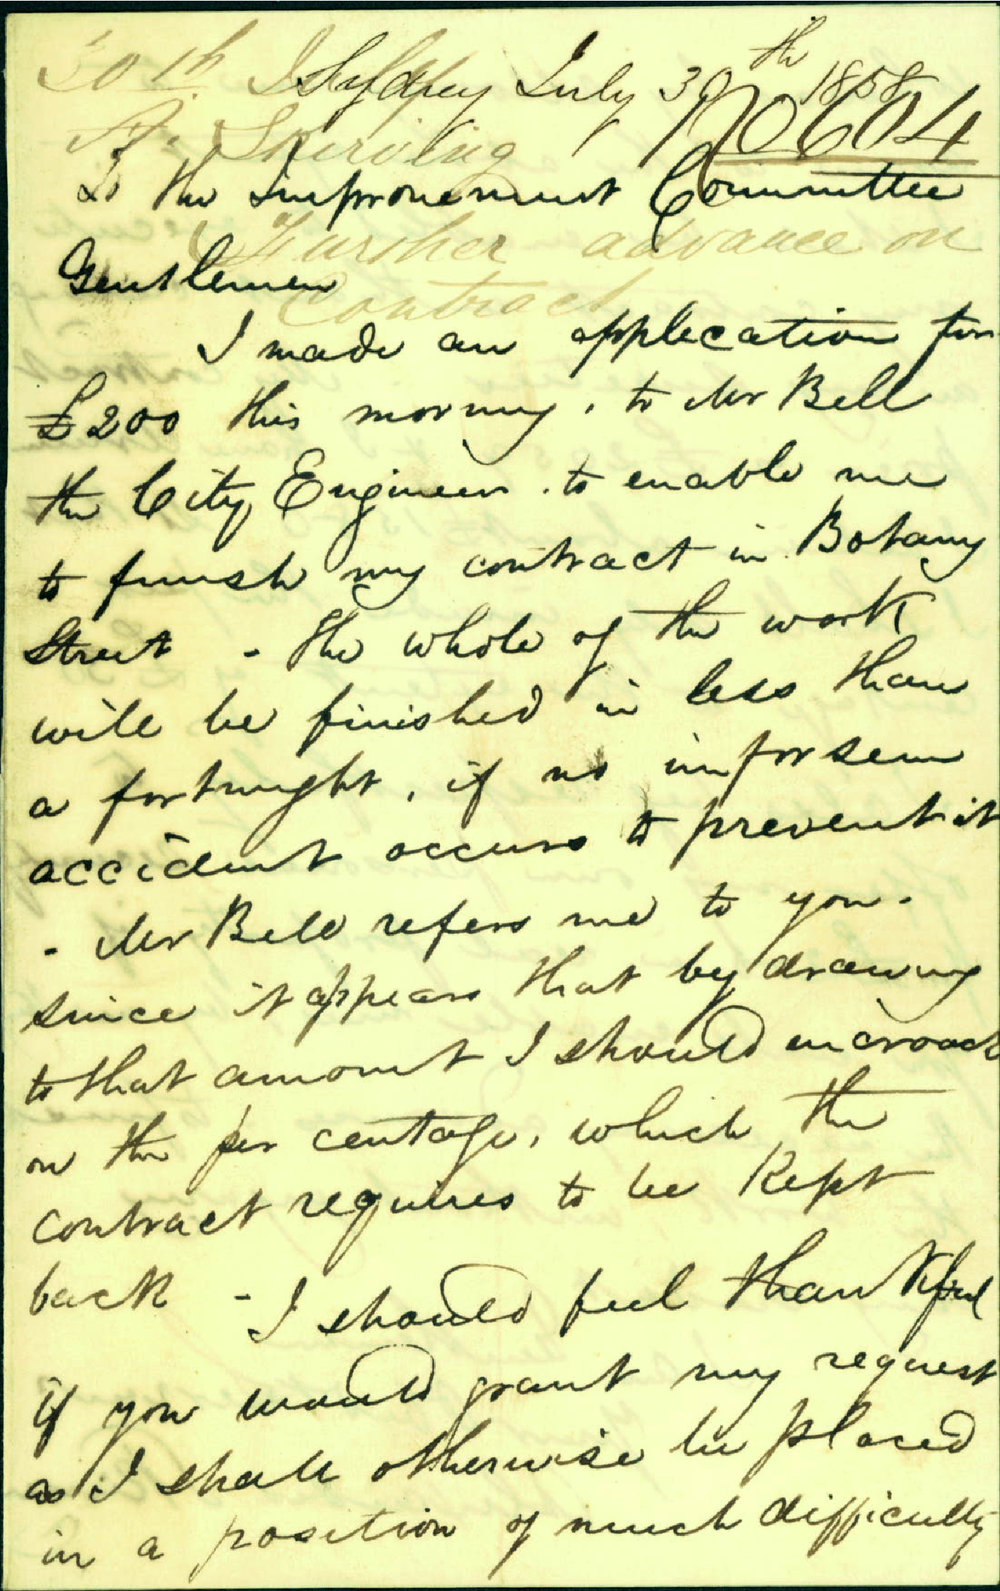 30th
Sydney July 30th 1858
No 604
A. Skirving
To the Improvement Committee
Further advance on
Gentlemen
Contract
I made an applecation for
£200 this morning, to Mr Bell
the City Engineer. to enable me
to finish my contract in Botany
Street - the whole of the work
will be finished in less than
a fortnight, if no unforseen
accident occurs to prevent it
- Mr Bell refers me to you.
since it appears that by drawing
to that amount I should incroach
on the per centage, which the
contract requires to be kept
back - I should feel thankful
if you would grant my request
as I shall otherwise be placed
in a position of much difficulty